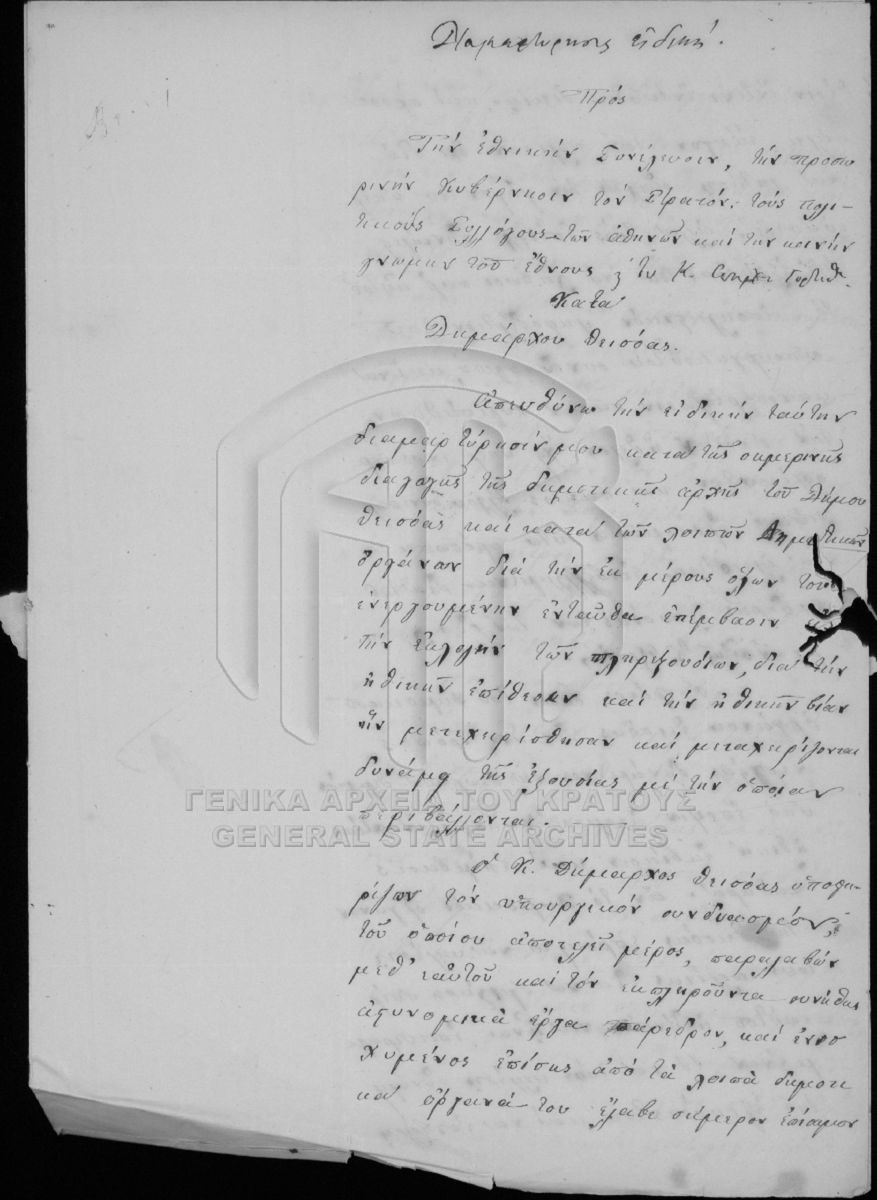 Διαμαρτύρησις εἰδική.
Πρός
Τήν ἐθνικήν Συνέλευσιν, τήν προσω
ρινήν Κυβέρνησιν τόν Στρατόν, τούς πολι-
τικούς Συλλόγους τῶν ἀθηνῶν καί τήν κοινήν
γνώμην τοῦ ἔθνους & τν Κ.
Κατά
Δημάρχου Θεισόας.
Απευθύνω τήν εἰδικήν ταύτην
διαμαρτύρησίν μου κατά τῆς σημερινῆς
διαγωγῆς τῆς δημοτικῆς ἀρχῆς τοῦ Δήμου
Θεισόας καί κατά τῶν λοιπῶν Δημοτικῶν
ὀργάνων διά τήν ἐκ μέρους ὅλων τού
ἐνεργουμένην ἐνταῦθα ἐπέμβασιν
τήν ἐκλογήν τῶν πληρεξουσίων, διά τήν
ἠθικήν ἐπίθεσιν καί τήν ἠθικήν βίαν
ἥν μετεχειρίσθησαν καί μεταχειρίζονται
δυνάμει τῆς ἐξουσίας μέ τήν ὁποίαν
περιβάλλονται.
ὁ Κ. Δήμαρχος Θεισόας ὑποστη
ρίζων τόν ὑπουργικόν συνδυασμόν,
τοῦ ὁποίου ἀποτελεῖ μέρος, παραλαβών
μεθ' ἑαυτοῦ καί τόν ἐκπληροῦντα συνήθως
ἀστυνομικά ἔργα πάρεδρον, καί ἐνισ
χυμένος ἐπίσης ἀπό τά λοιπά δημοτι
κά ὄργανά του ἔλαβε σήμερον ἐπίσημον
ΓΕΝΙΚΑ ΑΡΧΕΙΑ ΤΟΥ ΚΡΑΤΟΥΣ
GENERAL STATE ARCHIVES